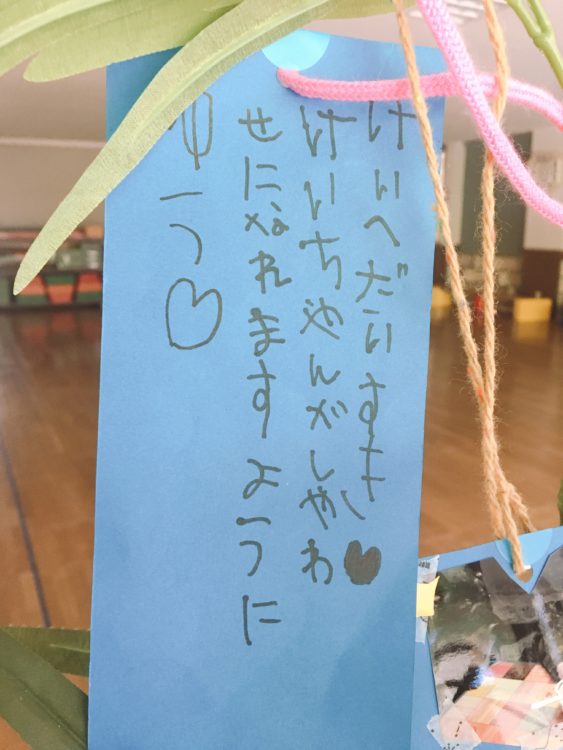 けいへだいすき♥
けいちゃんがしやわ
せになれますように
ゆう♡